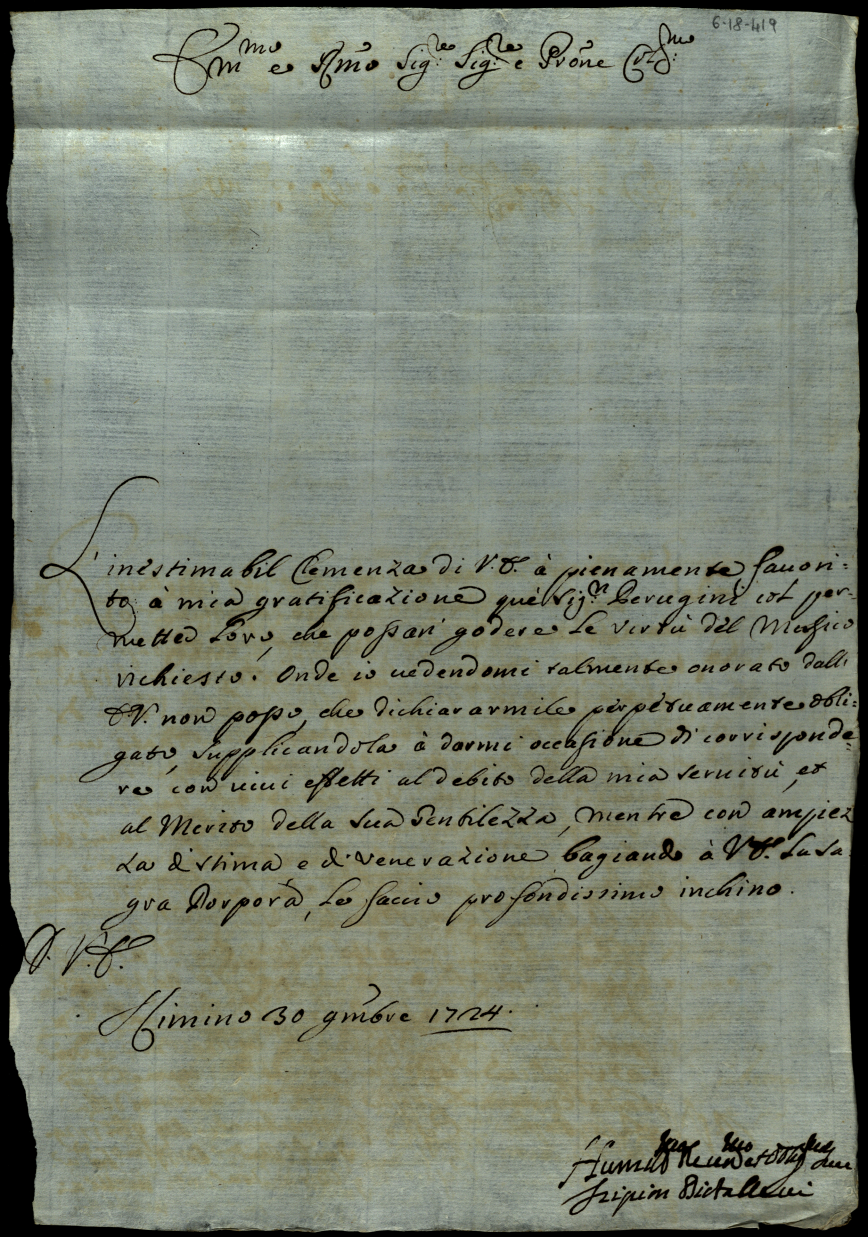 6-18-419
Em.mo e Rmo Sig.re Sig.re e Prone
L'inestimabil Clemenza di V. E. à pienamente favori-
to à mia gratificazione què Sig.ri Perugini col per-
mettes Loro, che possan' godere le virtù dèl Mussico
richiesto. Onde io vedendomi talmente onorato dall'
E. V. non posso, che dichiararmile pèrpètuamente obli-
gato, supplicandola à darmi occasione di corrisponde-
re con vivi effetti al debito della mia servitù, et
al Merito della sua Gentilezza, mentre con ampiez
za di stima, e di venerazione bagiando à V. E. la sa
gra Porpora, le faccio profondissimo inchino.
D. V. E.
Rimino 30 9mbre 1724.
Scipion